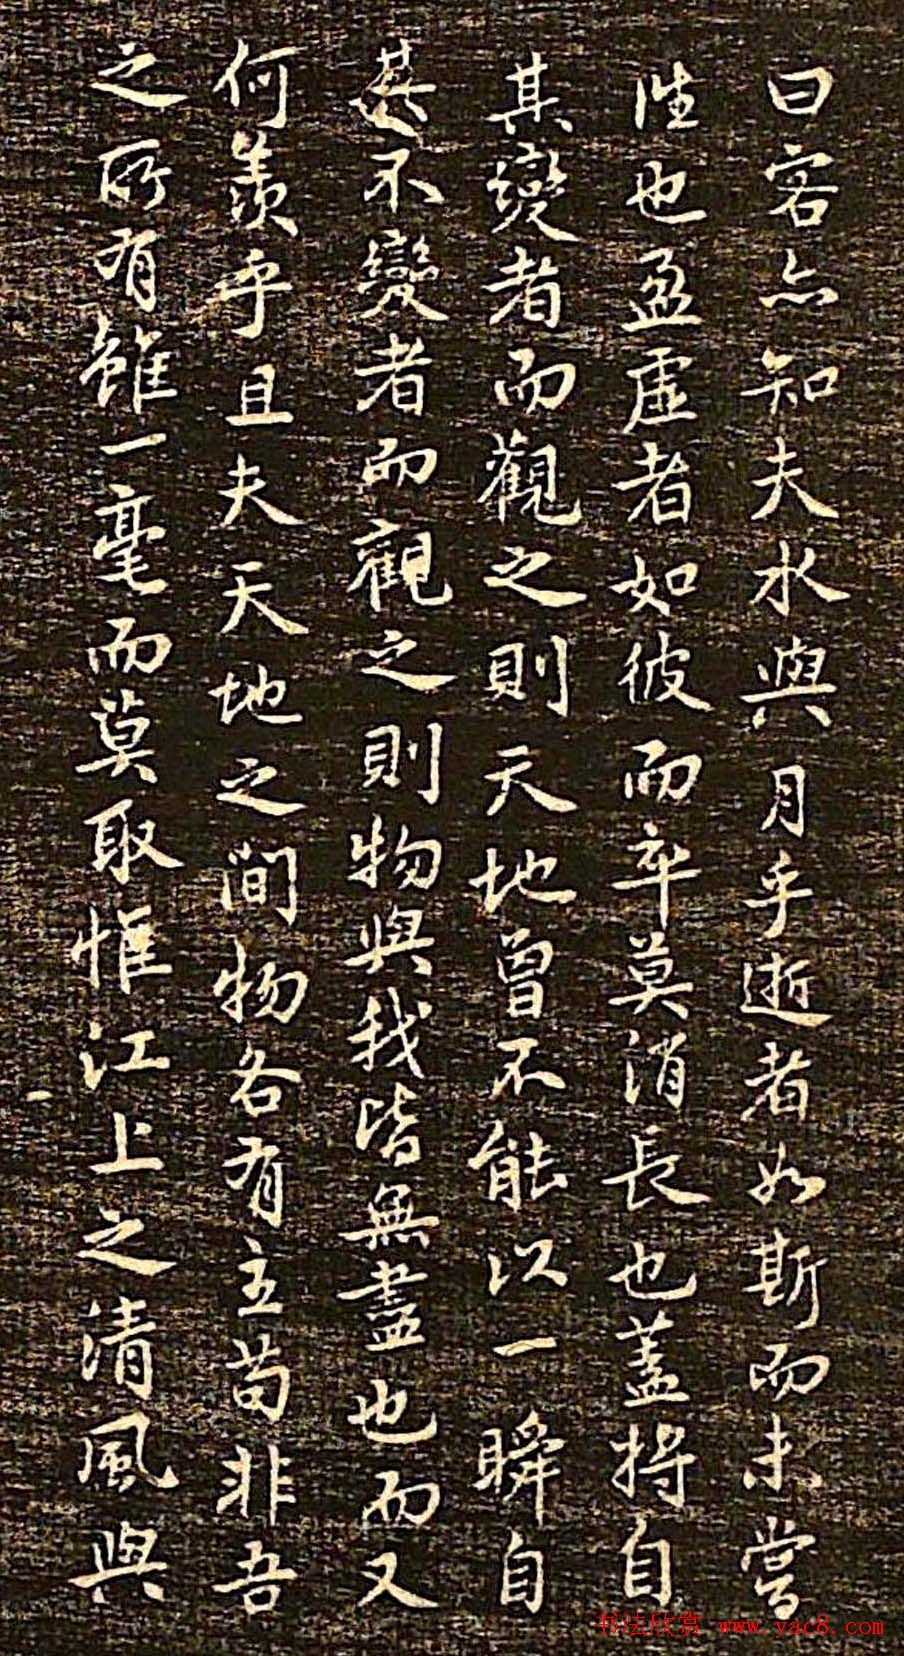 曰客亦知夫水與月乎逝者如斯而未嘗
往也盈虛者如彼而卒莫消長也蓋將自
其變者而觀之則天地曾不能以一瞬自
其不變者而觀之則物與我皆無盡也而又
何羨乎且夫天地之間物各有主苟非吾
之所有雖一毫而莫取惟江上之清風與
书法欣赏 www.yac8.com